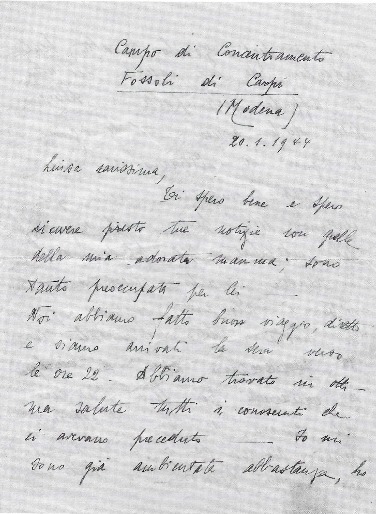 Campo di Concentramento
Fóssoli di Carpi
(Modena)
20.1.1944
Luisa carissima,
Ti spero bene e spero
ricevere presto tue notizie con quelle
della mia adorata mamma; sono
tanto preoccupata per lei
Noi abbiamo fatto buon viaggio,
e siamo arrivati la sera verso
le ore 22. Abbiamo trovato in otti-
ma salute tutti i conoscenti che
ci avevano preceduto — Io mi
sono già ambientata abbastanza, ho